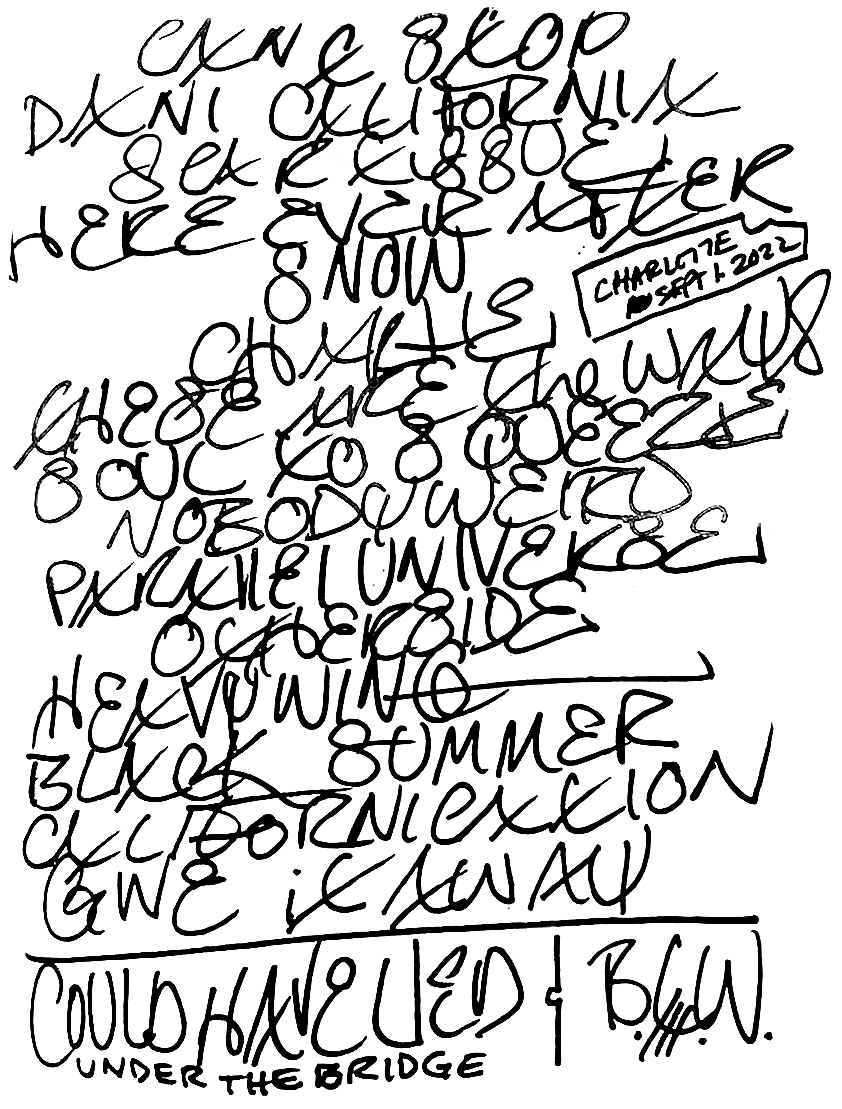 CAN'T STOP
DANI CALIFORNIA
SCAR TISSUE
HERE EVER AFTER
SNOW
CHARLOTTE
SEPT 1. 2022
CHARLIE
THESE ARE The WAYS
SOUL TO SQUEEZE
NOBODY WEIRD
PARALLEL UNIVERSE
OTHERSIDE
HEAVY WING
BLACK SUMMER
CALIFORNICATION
GIVE iT AWAY
COULD HAVE LIED B.T.W.
UNDER THE BRIDGE